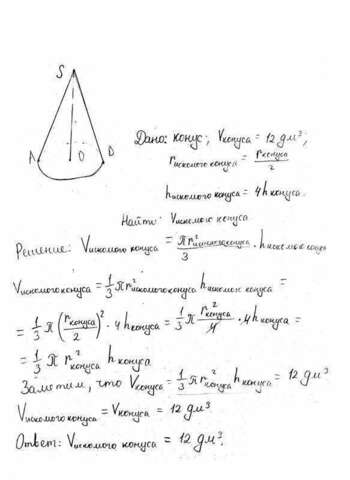 S
A O D
Дано: конус, Vконуса = 12 дм³,
rискомого конуса = rконуса/2
hискомого конуса = 4hконуса.
Найти: Vискомого конуса
Решение: Vискомого конуса = πr²искомого конуса/3 · hискомого конуса
Vискомого конуса = 1/3 π r²искомого конуса hискомого конуса =
= 1/3 π (rконуса/2)² · 4hконуса = 1/3 π r²конуса/4 · 4hконуса =
= 1/3 π r²конуса hконуса
Заметим, что Vконуса = 1/3 π r²конуса hконуса = 12 дм³
Vискомого конуса = Vконуса = 12 дм³
Ответ: Vискомого конуса = 12 дм³.